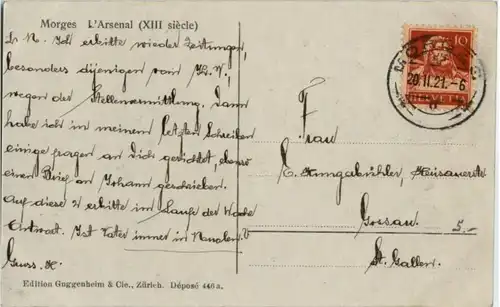 Morges L'Arsenal (XIII siècle)
L. N. Ich erbitte wieder Zeitungen,
besonders diejenigen vom
wegen der Stellenvermittlung. Dann
habe ich in meinem letzten Schreiben
einige fragen an Dich gerichtet, ebenso
einen Brief an Johann geschrieben.
Auf diese 2 erbitte im Laufe der Woche
Antwort. Ist Vater immer in
Gruss. H.
Edition Guggenheim & Cie., Zürich. Déposé 446 a.
10
MORGES
20.II.21.-6
HELVETIA
Frau
Gossau 5.-
St. Gallen.